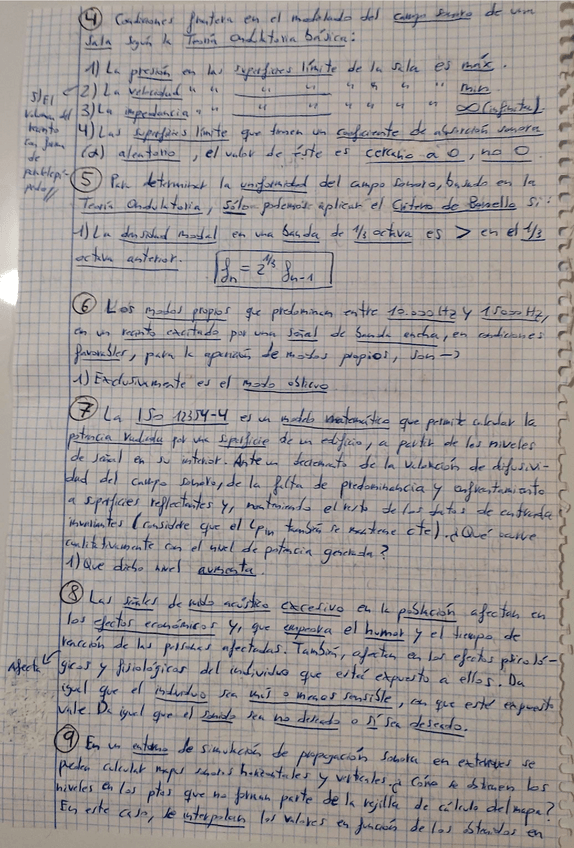 ④ Condiciones frontera en el modelado del campo sonoro de una
sala según la Teoría Ondulatoria básica:
1) La presión en las superficies límite de la sala es máx.
2) La velocidad " " " " " " " " min
3) La impedancia " " " " " " " " ∞ (infinita).
4) Las superficies límite que tienen un coeficiente de absorción sonora
(α) aleatorio, el valor de éste es cercano a 0, no 0.
5) El
volumen del
recinto
con forma
de
paralelepí-
pedo//
⑤ Para determinar la uniformidad del campo sonoro, basado en la
Teoría Ondulatoria, sólo podemos aplicar el Criterio de Bonello si:
1) La densidad modal en una banda de 1/3 octava es > en el 1/3
octava anterior.
fn = 2^1/3 fn-1
⑥ Los modos propios que predominan entre 10.000 Hz y 15000 Hz,
en un recinto excitado por una señal de banda ancha, en condiciones
favorables, para la aparición de modos propios, son →
1) Exclusivamente es el modo oblicuo
⑦ La ISO 12354-4 es un modelo matemático que permite calcular la
potencia radiada por una superficie de un edificio, a partir de los niveles
de señal en su interior. Ante un decremento de la valoración de difusivi-
dad del campo sonoro, de la falta de predominancia y enfrentamiento
a superficies reflectantes y, manteniendo el resto de los datos de entrada
invariantes (considere que el Lp,in también se mantiene cte). ¿Qué ocurre
cualitativamente con el nivel de potencia generada?
1) Que dicho nivel aumenta.
⑧ Las señales de ruido acústico excesivo en la población afectan en
los efectos económicos y, que empeora el humor y el tiempo de
reacción de las personas afectadas. También, afectan en los efectos psicoló-
Afecta
gicos y fisiológicos del individuo que esté expuesto a ellos. Da
igual que el individuo sea más o menos sensible, con que esté expuesto
vale. Da igual que el sonido sea no deseado o sí sea deseado.
⑨ En un entorno de simulación de propagación sonora en exteriores se
pueden calcular mapas sonoros horizontales y verticales. ¿Cómo se obtienen los
niveles en los ptos que no forman parte de la rejilla de cálculo del mapa?
En este caso, se interpolan los valores en función de los obtenidos en